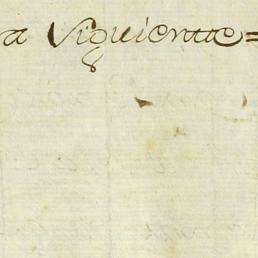 a Siguiente=